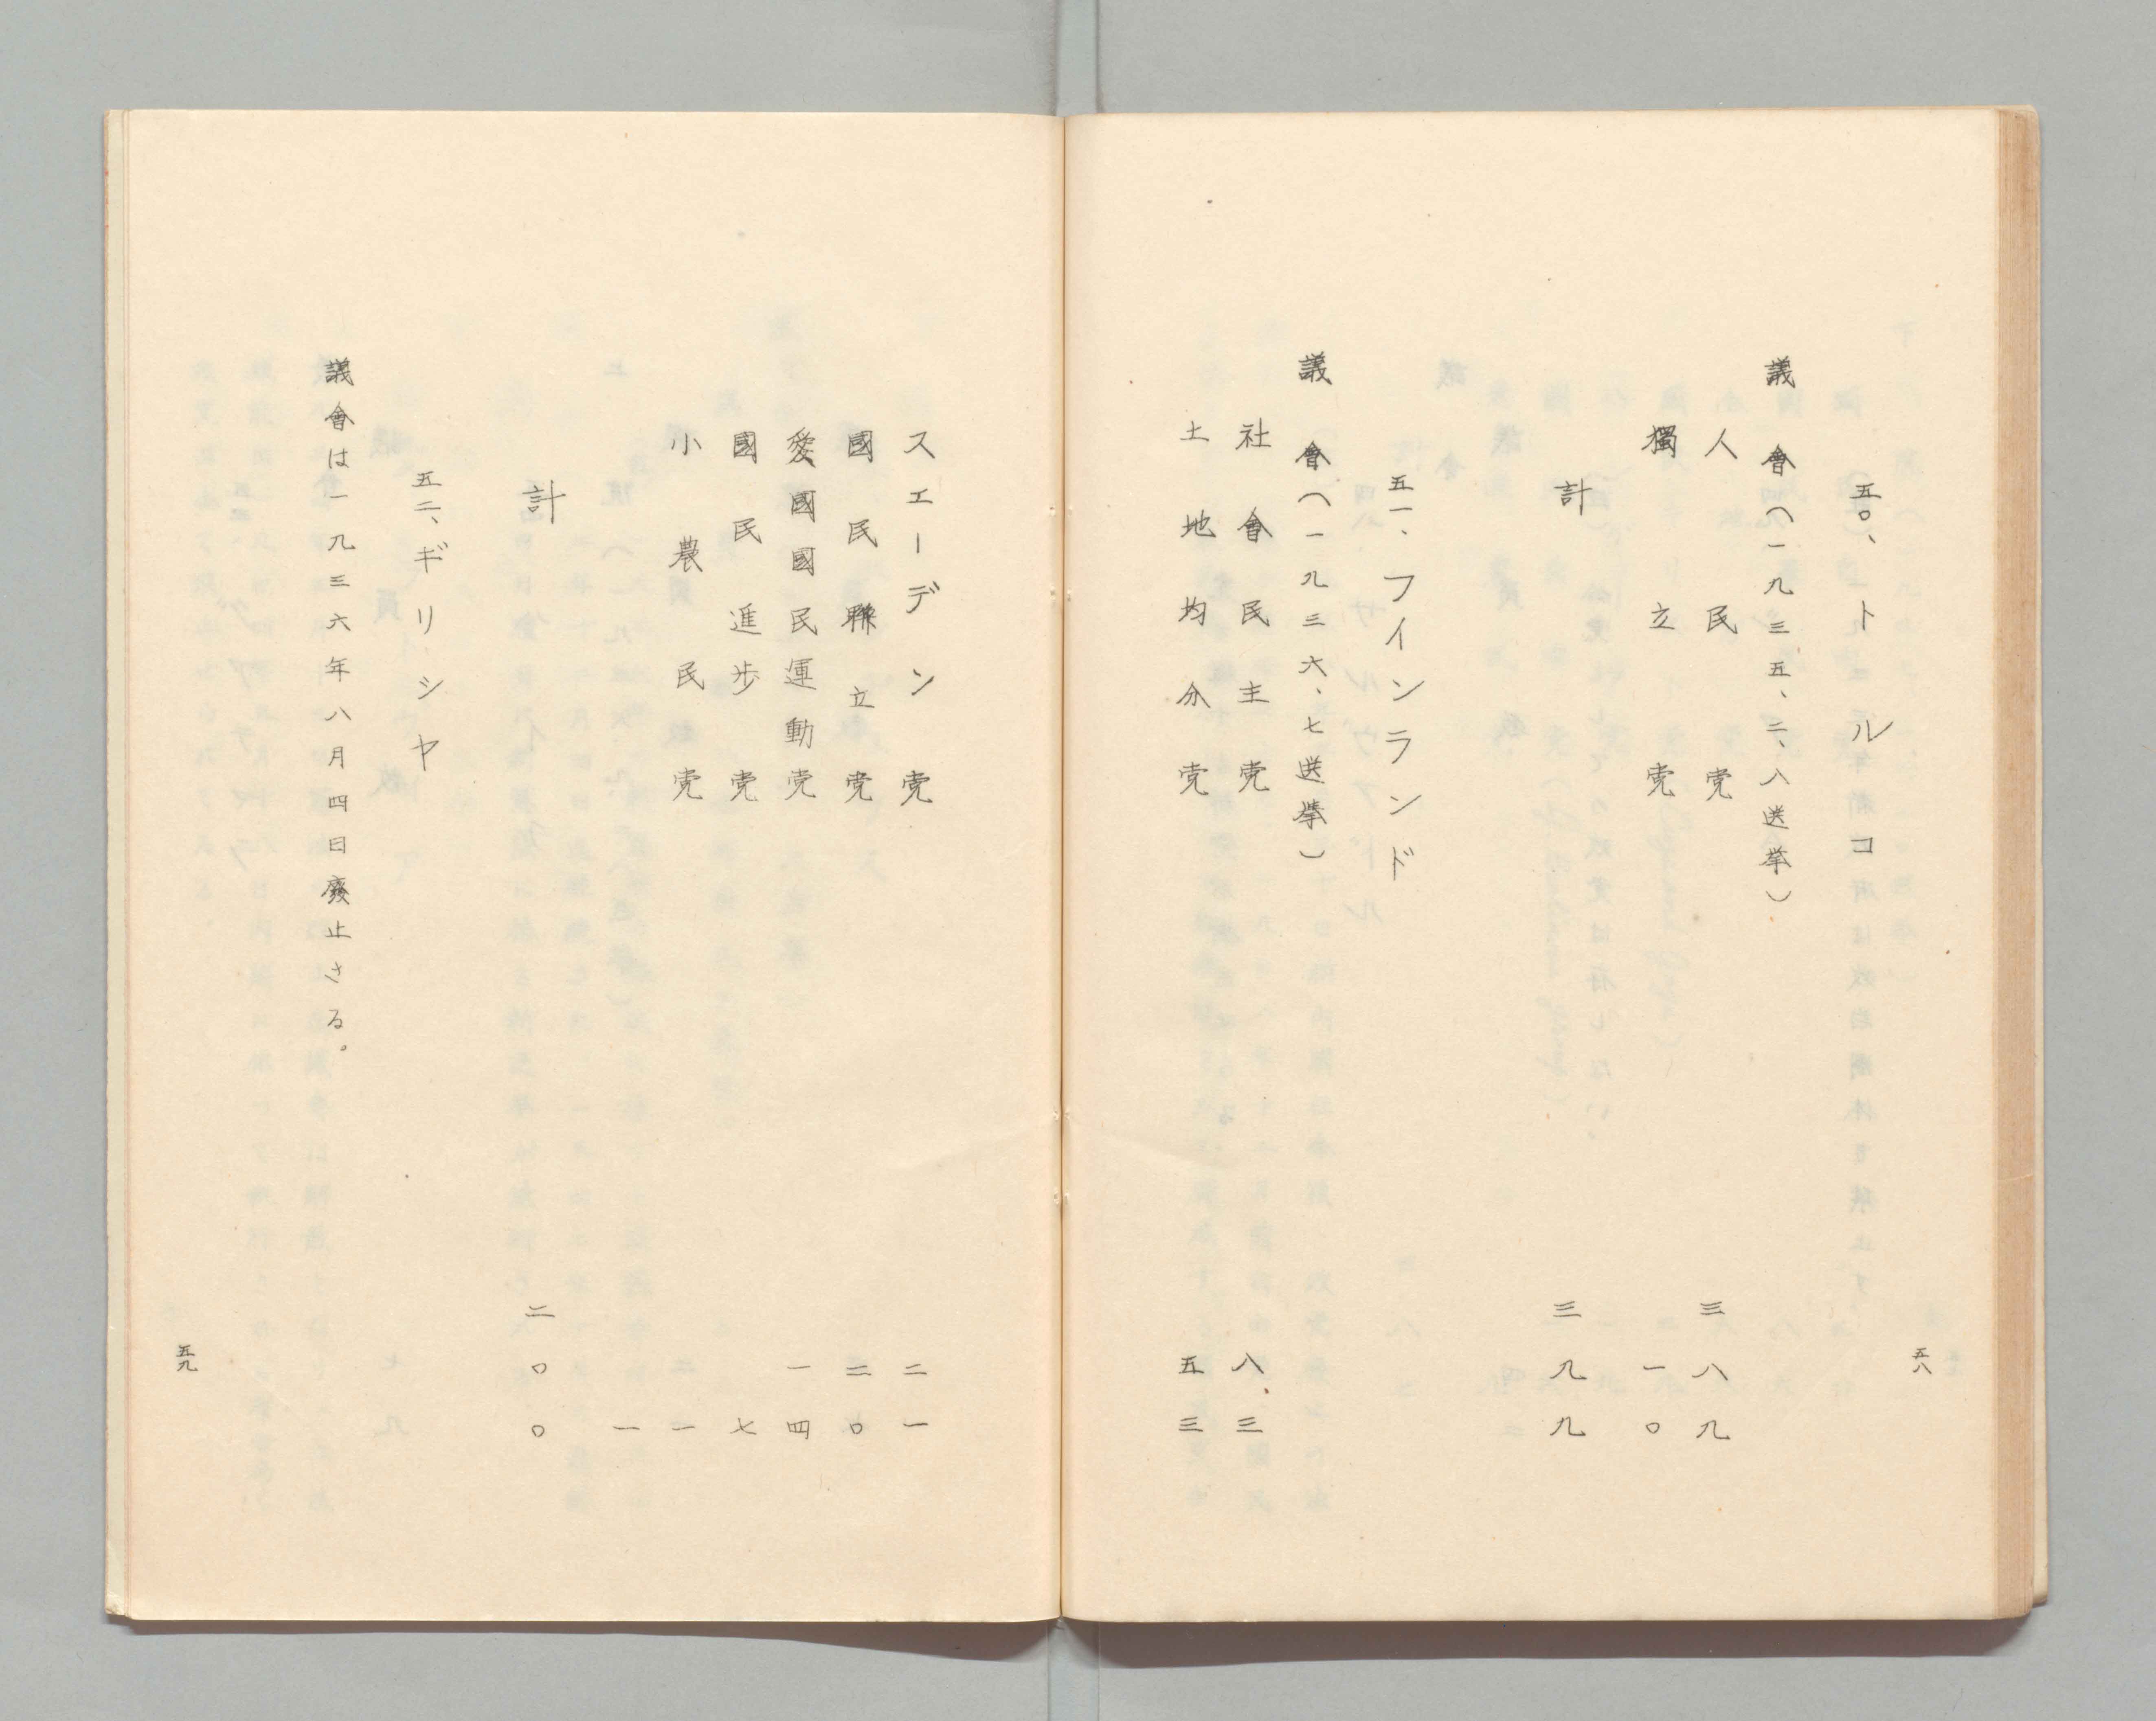 五〇、トルコ
議會(一九三五、二、八選挙)
人民党 三八九
獨立党 一〇
計 三九九
五一、フインランド
議會(一九三六、七選挙)
社会民主党 八三
土地均分党 五三
五八
スエーデン党 二一
國民聯立党 二〇
愛國國民運動党 一四
國民進歩党 七
小農民党 一
一
計 二〇〇
五二、ギリシヤ
議會は一九三六年八月四日廢止さる。
五九